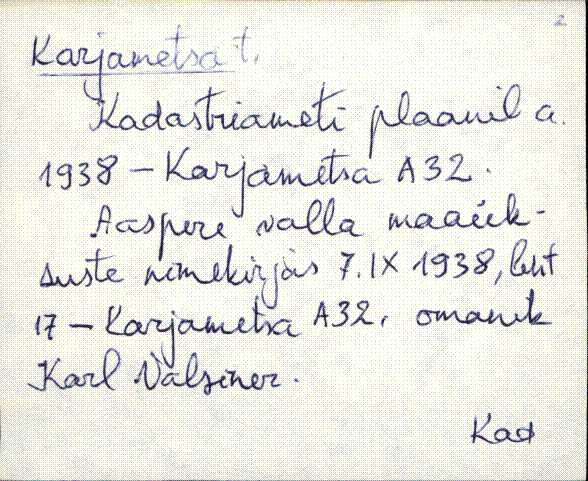 2
Karjametsa t.
Kadastriameti plaanil a.
1938 – Karjametsa A 32.
Aaspere valla maaük-
suste nimekirjas 7. IX 1938, leht
17 – Karjametsa A32, omanik
Karl Valsiner.
Kad